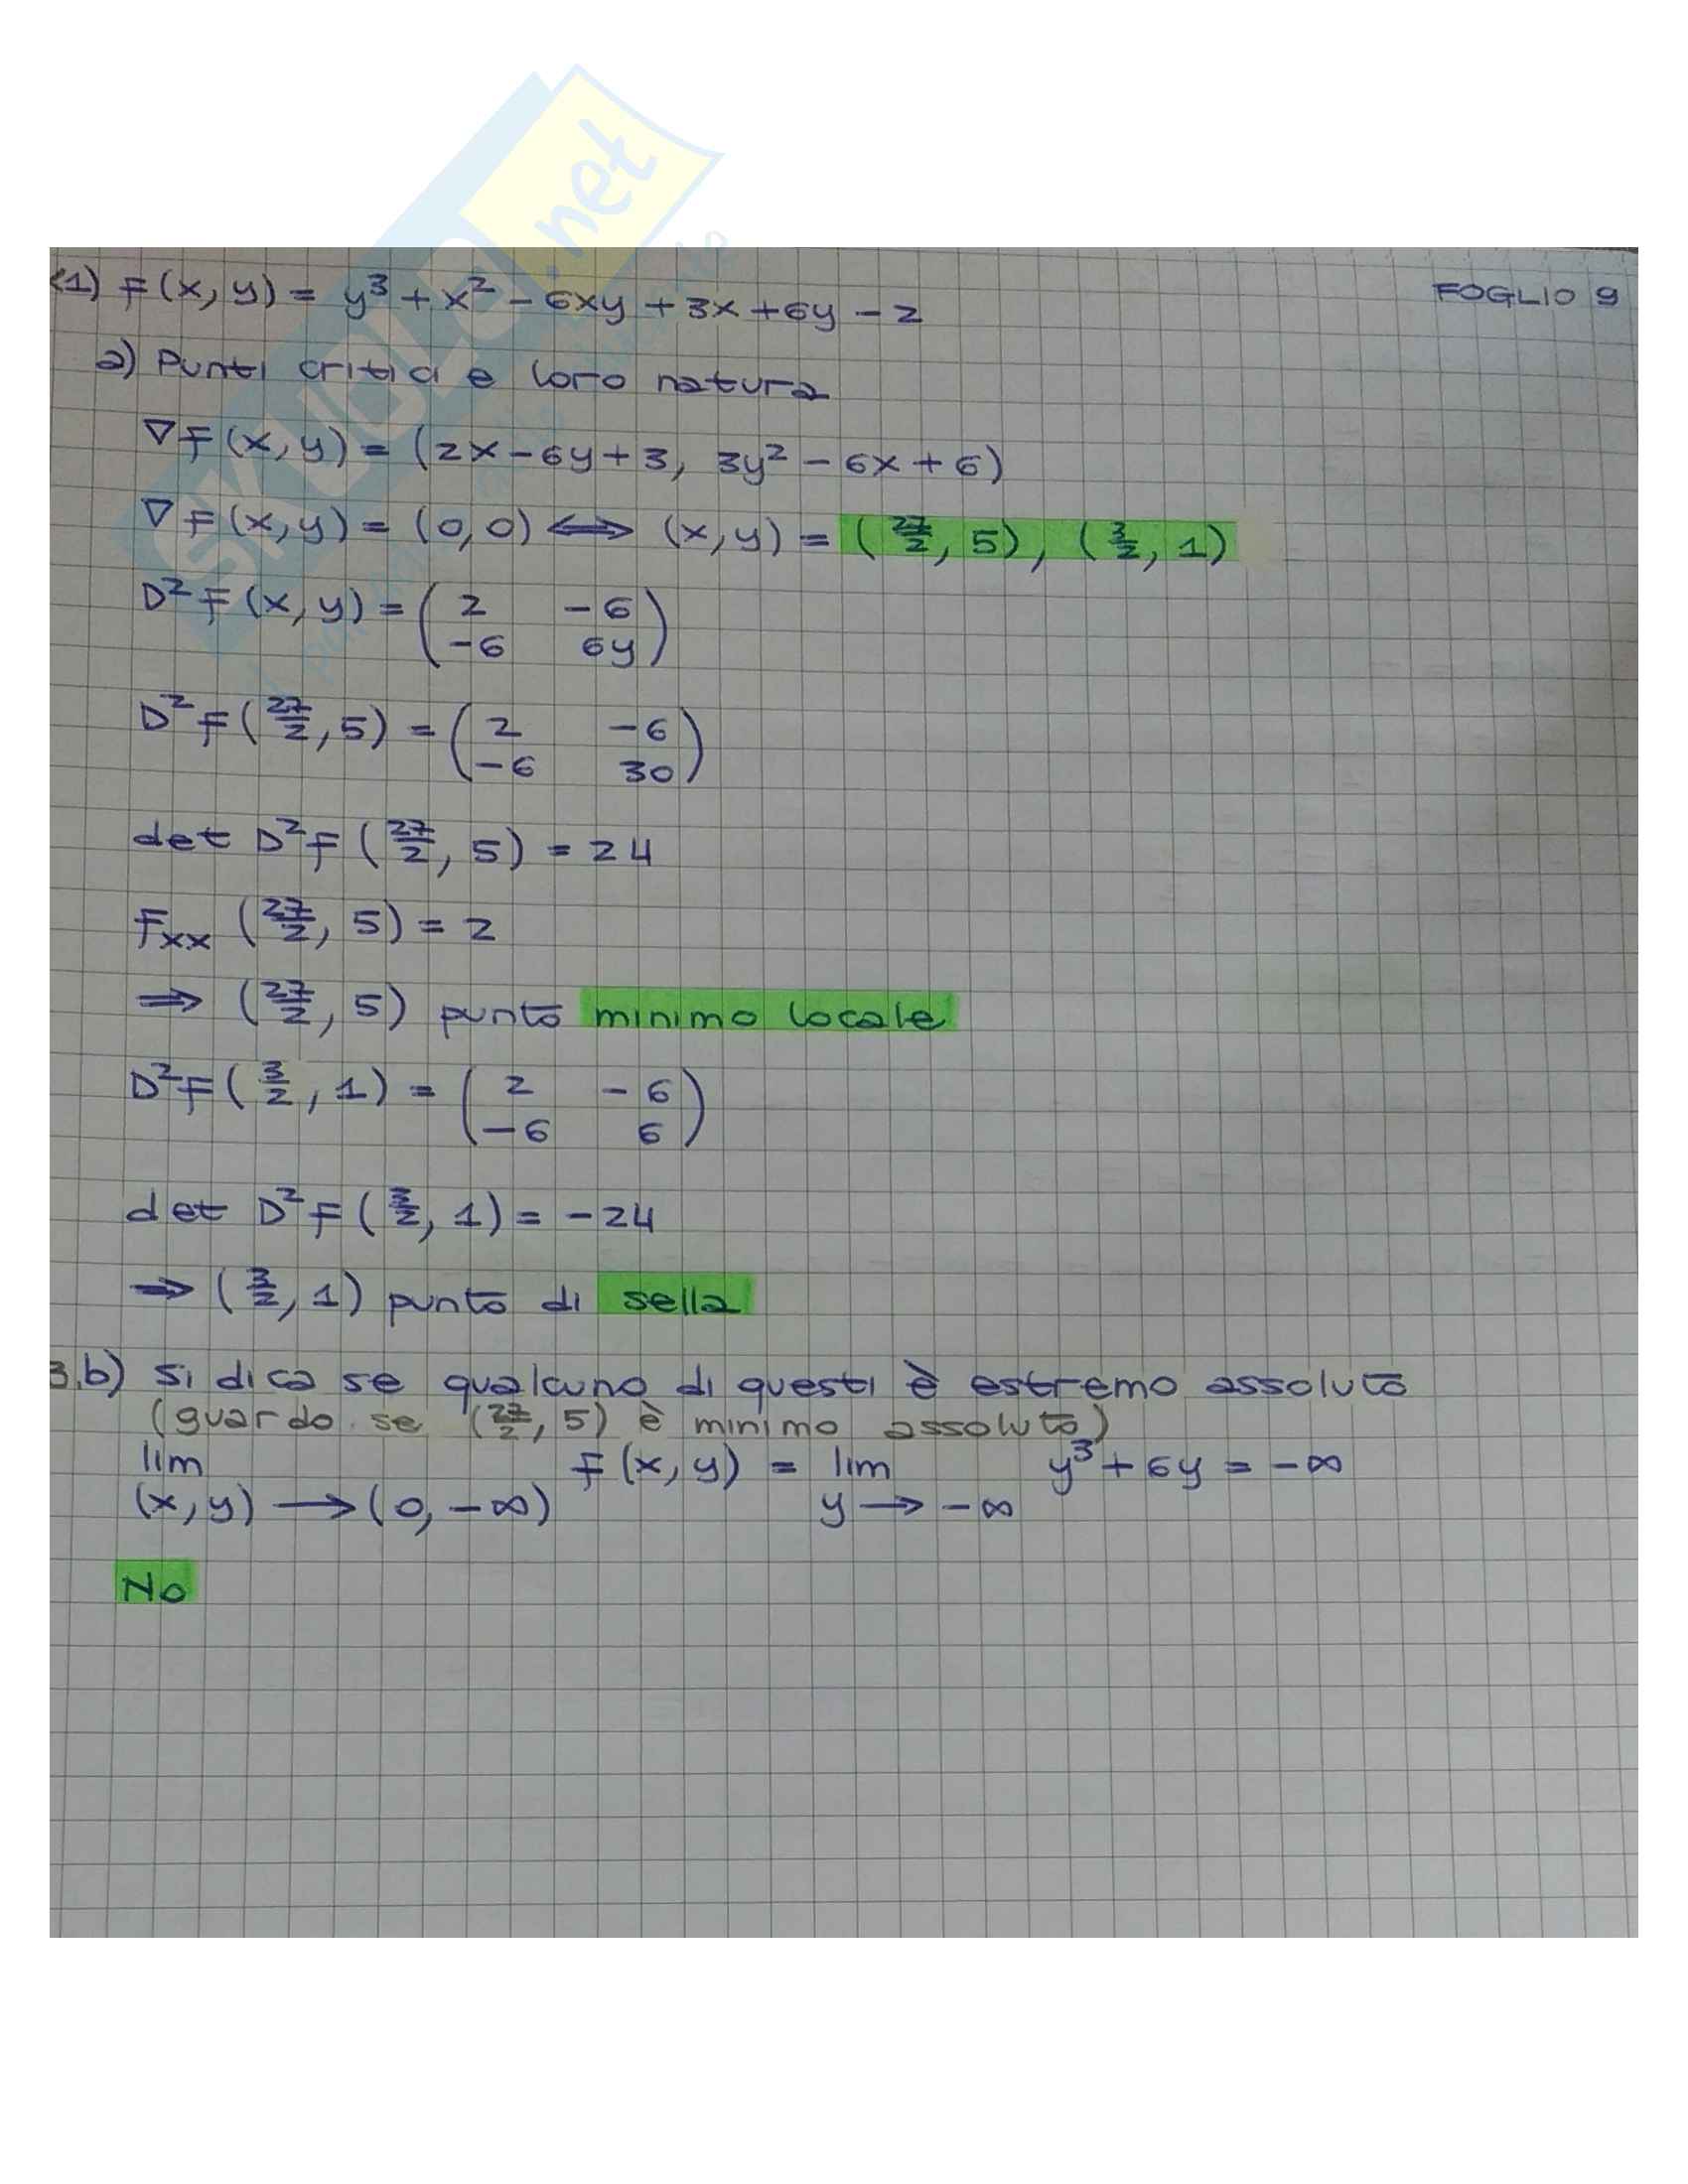 SKUOLA.net
(1) F(x,y) = y³ + x² - 6xy + 3x + 6y - 2
FOGLIO 9
a) Punti critici e loro natura
∇F(x,y) = (2x - 6y + 3, 3y² - 6x + 6)
∇F(x,y) = (0,0) ⟺ (x,y) = (27/2, 5), (3/2, 1)
D²F(x,y) = ( 2 -6
-6 6y )
D²F(27/2, 5) = ( 2 -6
-6 30 )
det D²F(27/2, 5) = 24
Fxx (27/2, 5) = 2
⟹ (27/2, 5) punto minimo locale
D²F(3/2, 1) = ( 2 -6
-6 6 )
det D²F(3/2, 1) = -24
⟹ (3/2, 1) punto di sella
3.b) Si dica se qualcuno di questi è estremo assoluto
(guardo se (27/2, 5) è minimo assoluto)
lim F(x,y) = lim y³ + 6y = -∞
(x,y) ⟶ (0, -∞) y ⟶ -∞
No